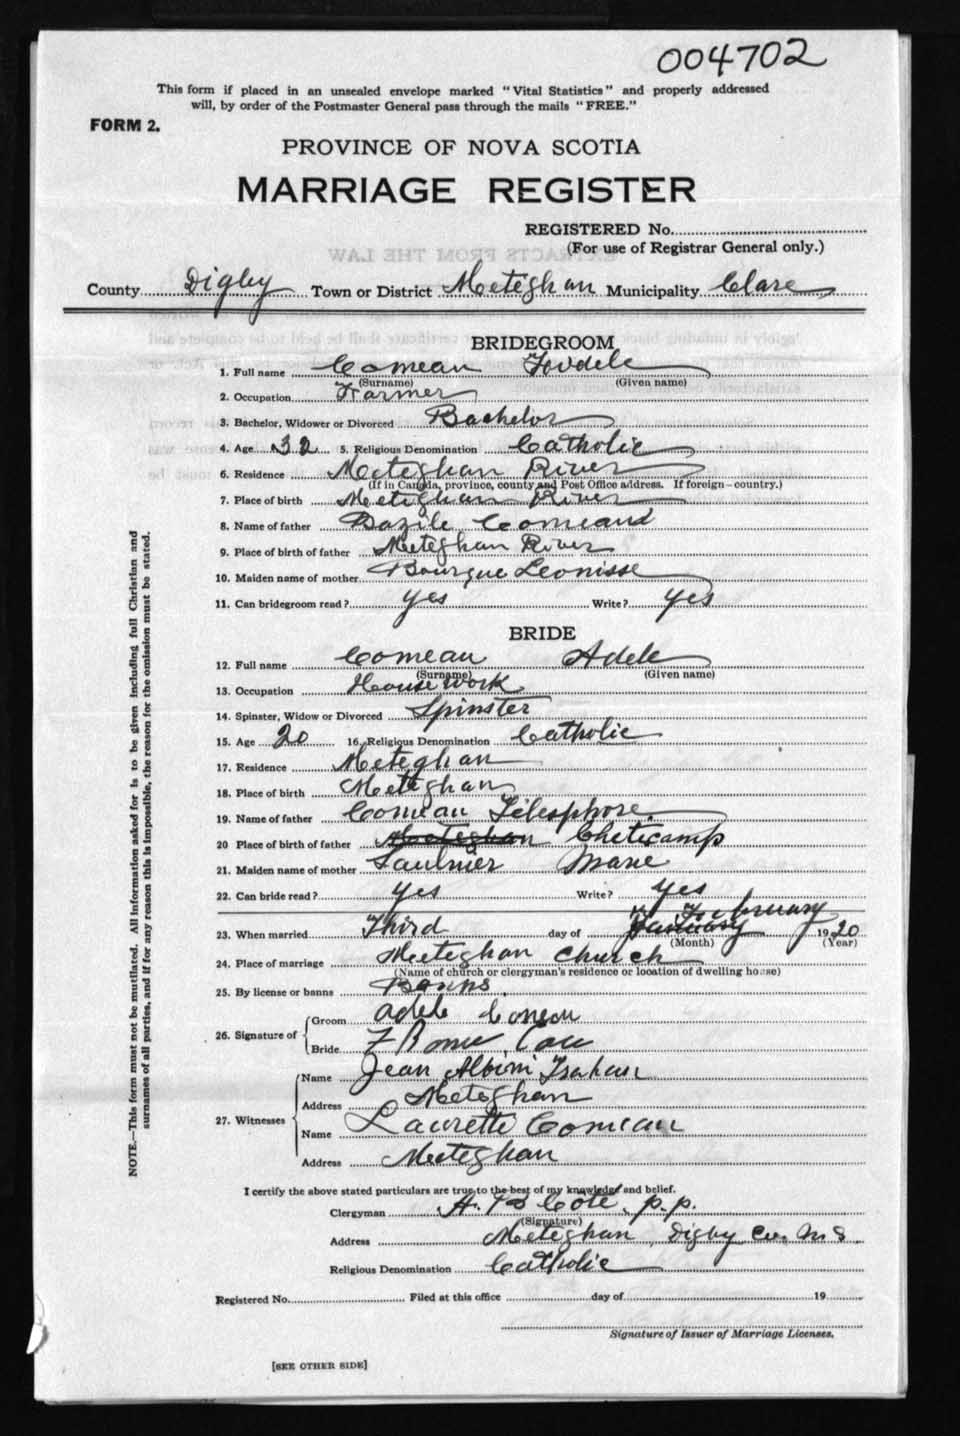 004702
This form if placed in an unsealed envelope marked "Vital Statistics" and properly addressed
will, by order of the Postmaster General pass through the mails "FREE."
FORM 2.
PROVINCE OF NOVA SCOTIA
MARRIAGE REGISTER
REGISTERED No.
(For use of Registrar General only.)
County Digby Town or District Meteghan Municipality Clare
BRIDEGROOM
1. Full name Comeau
(Surname) (Given name)
2. Occupation Farmer
3. Bachelor, Widower or Divorced Bachelor
4. Age 32 5. Religious Denomination Catholic
6. Residence Meteghan River
(If in Canada, province, county and Post Office address. If foreign—country.)
7. Place of birth Meteghan River
8. Name of father Bazile Comeau
9. Place of birth of father Meteghan River
10. Maiden name of mother Bourque Leonisse
11. Can bridegroom read? yes Write? yes
BRIDE
12. Full name Comeau Adele
(Surname) (Given name)
13. Occupation House work
14. Spinster, Widow or Divorced Spinster
15. Age 20 16. Religious Denomination Catholic
17. Residence Meteghan
18. Place of birth Meteghan
19. Name of father Comeau Telesphore
20 Place of birth of father Meteghan Cheticamp
21. Maiden name of mother Saulnier Marie
22. Can bride read? yes Write? yes
23. When married Third day of January February 1920
(Month) (Year)
24. Place of marriage Meteghan Church
(Name of church or clergyman's residence or location of dwelling house)
25. By license or banns Banns
26. Signature of Groom Adele Comeau
Bride
27. Witnesses Name Jean Albini
Address Meteghan
Name Laurette Comeau
Address Meteghan
I certify the above stated particulars are true to the best of my knowledge and belief.
Clergyman A. B Coté, p.p.
(Signature)
Address Meteghan, Digby Co. N S.
Religious Denomination Catholic
Registered No. Filed at this office day of 19
Signature of Issuer of Marriage Licenses.
[SEE OTHER SIDE]
NOTE.—This form must not be mutilated. All information asked for is to be given including full Christian and
surnames of all parties, and if for any reason this is impossible, the reason for the omission must be stated.